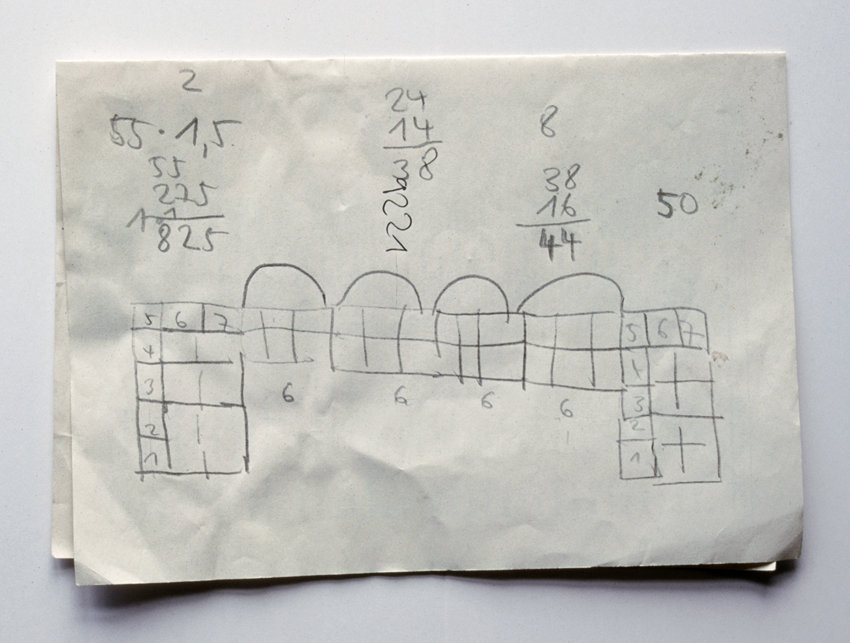 2
55 · 1,5
55
275
1 1
825
24
14
8
8
38
16
44
50
5 6 7
4
3
2
1
6 6 6 6
5 6 7
4
3
2
1